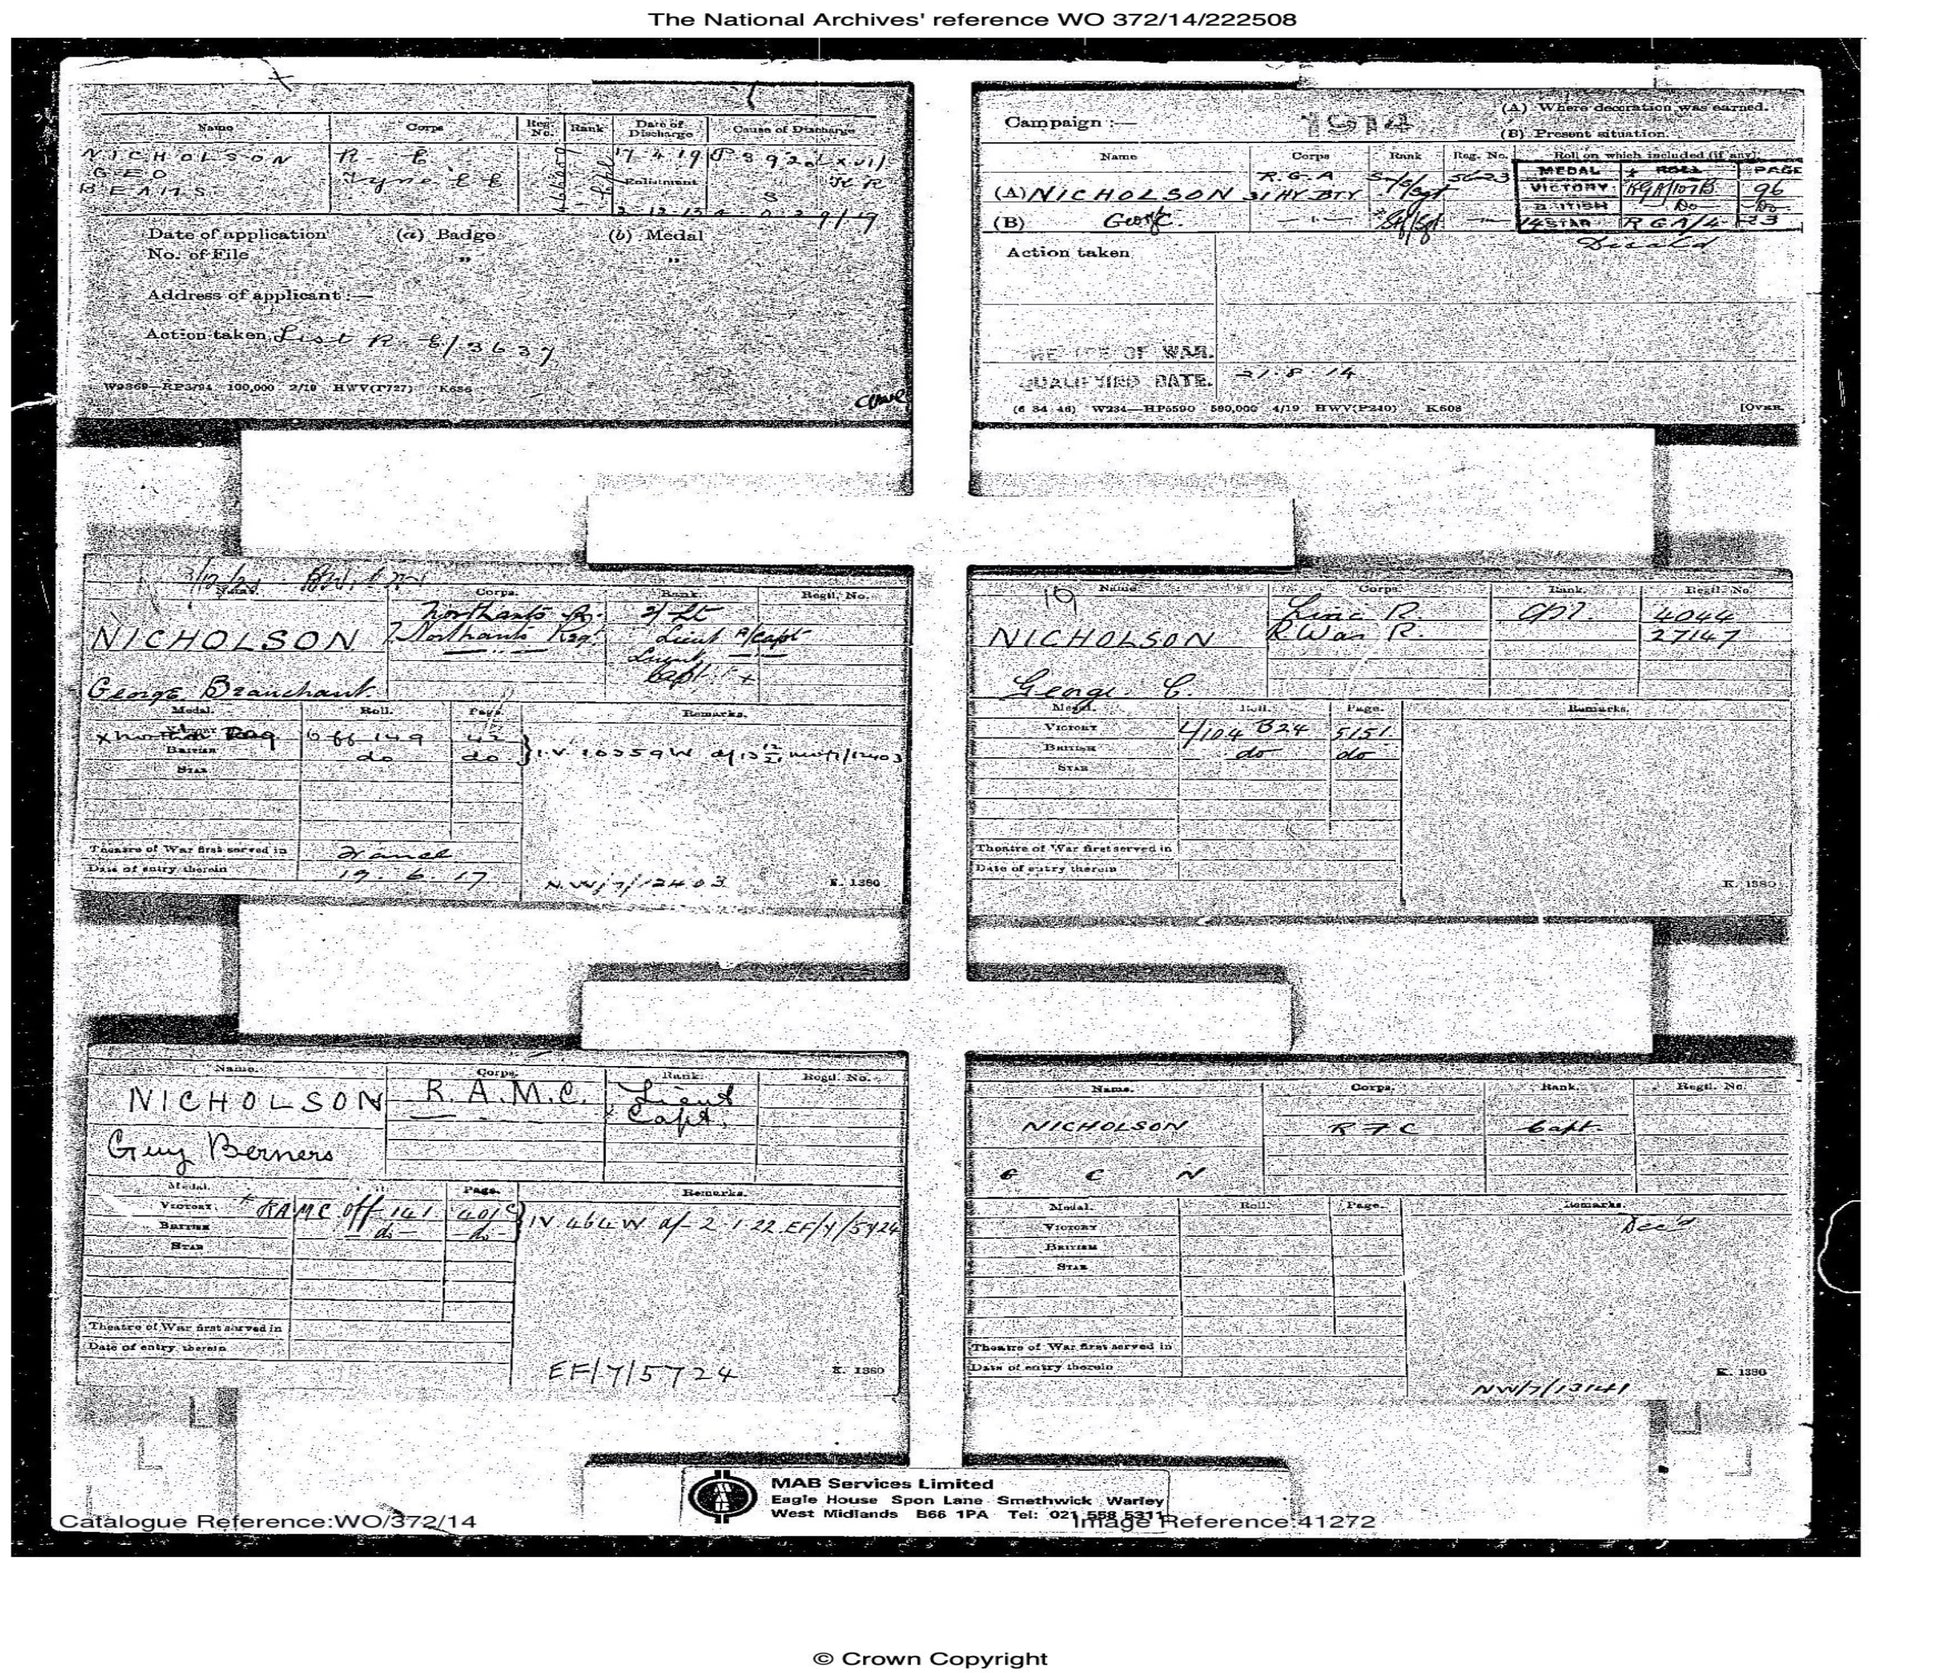 The National Archives' reference WO 372/14/222508
Name Corps Reg. No. Rank Date of Discharge Cause of Discharge
NICHOLSON R. E 17.4.19
GEO Tyne E E Enlistment
BEANS
Date of application (a) Badge (b) Medal
No. of File " "
Address of applicant :—
Action taken List R. E/3637
100,000 2/19 HWV(P727) K686
Campaign :— 1914 (A) Where decoration was earned.
(B) Present situation.
Name Corps Rank Reg. No. Roll on which included (if any)
MEDAL ROLL PAGE
(A) NICHOLSON R.G.A 31 HY. BTY 5623 VICTORY RGA/107B 96
BRITISH Do Do
(B) George C. 14 STAR RGA/4 23
Action taken
THEATRE OF WAR.
QUALIFYING DATE. 21.8.14
(6 34 46) W234—HP5590 500,000 4/19 HWV(P240) K608 [Over.
Name. Corps. Rank. Regtl. No.
Northants R. 2/Lt
NICHOLSON Northants Reg. Lieut A/Capt
Lieut
Capt
George Beauchant
Medal. Roll. Page. Remarks.
Off 149 42
British do do
Star
Theatre of War first served in France
Date of entry therein 19.6.17
NW/7/12403 K. 1380
19
Name Corps. Rank. Regtl. No.
Linc R. Cpl. 4044
NICHOLSON R War R. 27147
George C.
Medal. Roll. Page. Remarks.
Victory L/104 B24 5151
British do do
Star
Theatre of War first served in
Date of entry therein
K. 1380
Name. Corps. Rank. Regtl. No.
NICHOLSON R.A.M.C. Lieut
Capt.
Guy Berners
Medal. Page. Remarks.
Victory RAMC Off 141 401C IV 464W df 2.1.22. EF/7/5724
British do do
Star
Theatre of War first served in
Date of entry therein
EF/7/5724 K. 1380
Name. Corps. Rank. Regtl. No
NICHOLSON R F C Capt.
G C N
Medal. Roll. Page. Remarks.
Victory Dec'd
British
Star
Theatre of War first served in
Date of entry therein
K. 1380
NW/7/13141
MAB Services Limited
Eagle House Spon Lane Smethwick Warley
West Midlands B66 1PA Tel: 021 558 5311
Catalogue Reference:WO/372/14 Image Reference:41272
© Crown Copyright